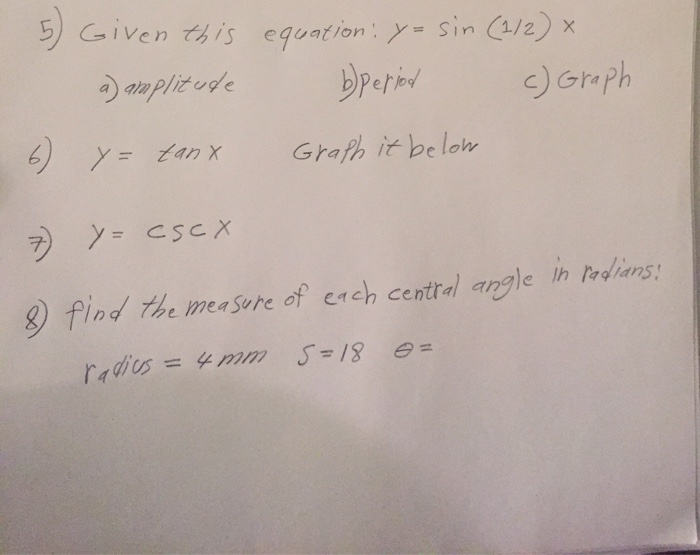 5) Given this equation: y = sin (1/2) x
a) amplitude b) period c) Graph
6) y = tan x Graph it below
7) y = csc x
8) find the measure of each central angle in radians:
radius = 4 mm S = 18 θ =